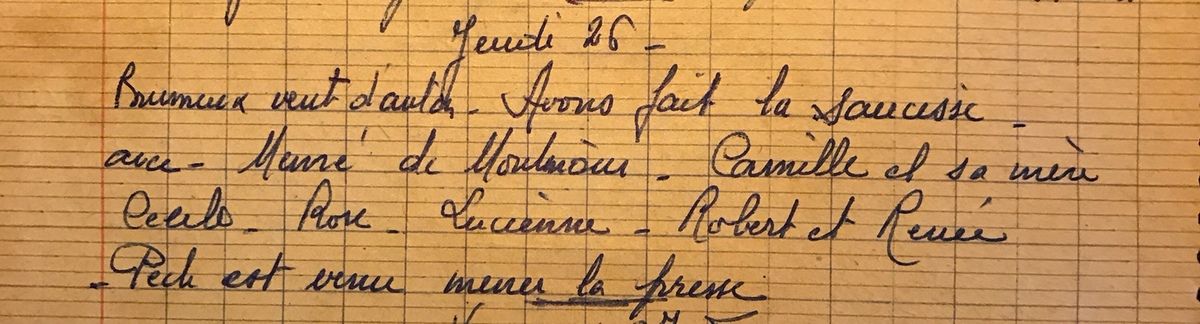 Jeudi 26 -
Brumeux vent d'autan - Avons fait la saucisse -
avec - de - Camille et sa mère
Cécile - Rose - Lucienne - Robert et Renée
- Pech est venu mener la presse